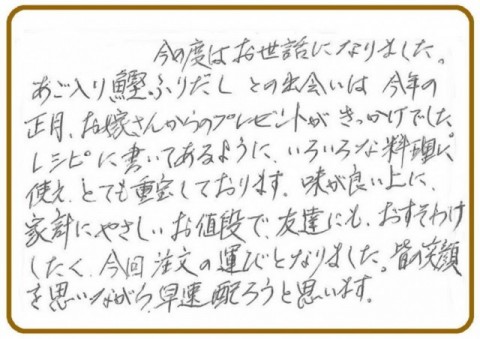 今の度はお世話になりました。
あご入り鰹ふりだし との出会いは 今年の
正月、お嫁さんからのプレゼントが きっかけでした。
レシピに書いてあるように、いろいろな料理に
使え、とても重宝しております。味が良い上に、
家計にやさしい お値段で、友達にも、おすそわけ
したく、今回 注文の運びとなりました。皆の笑顔
を思いながら、早速 配ろうと思います。